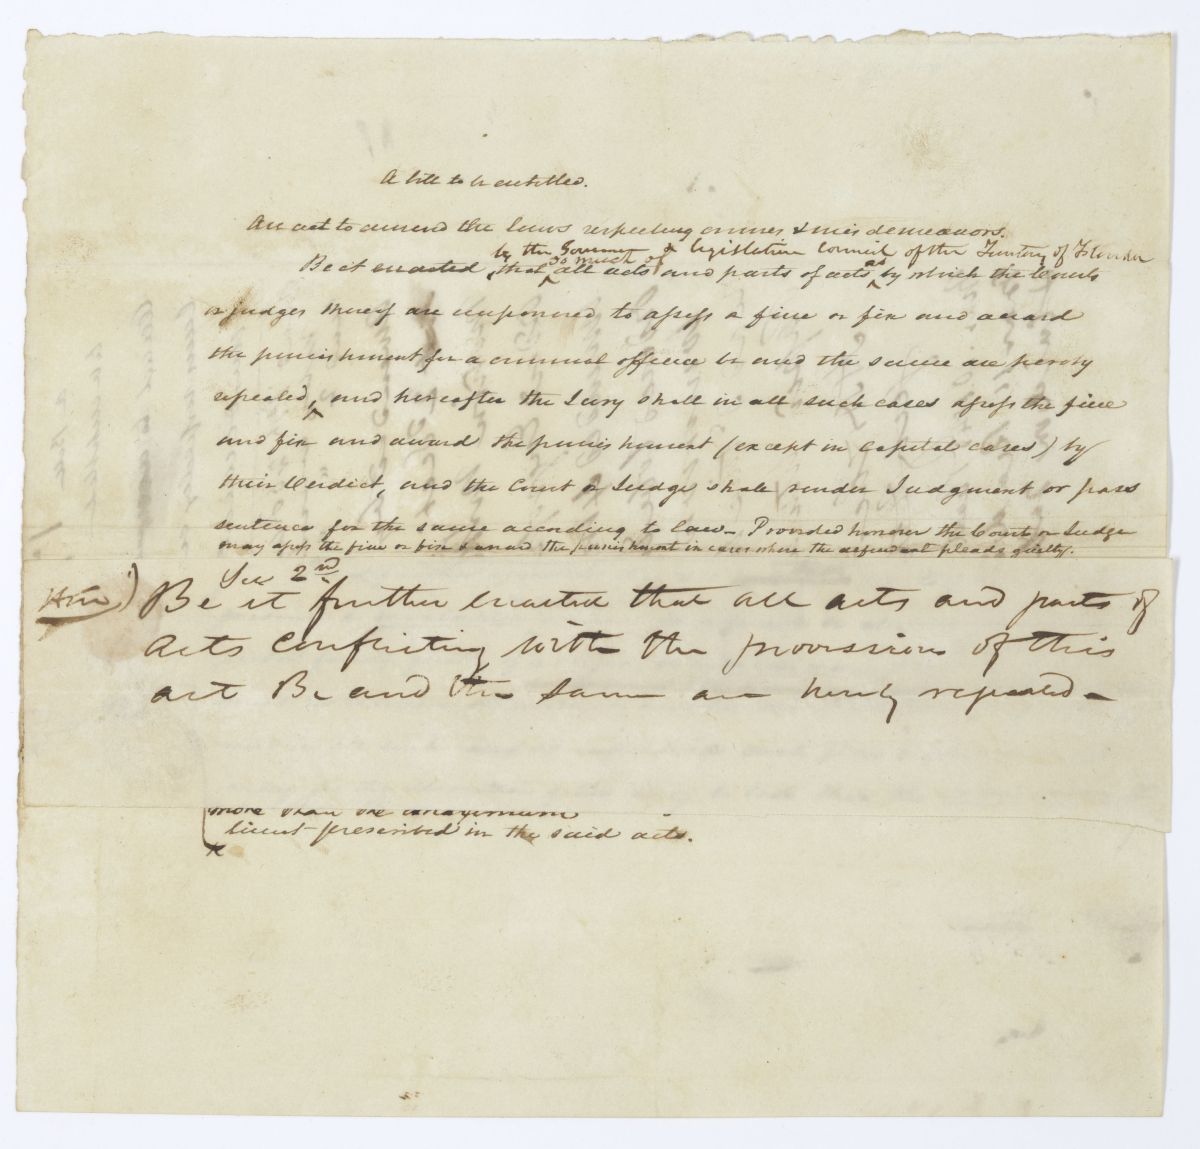 A bill to be entitled.
An act to amend the laws respecting crimes & misdemeanors.
by the Governor & legislative Council of the Territory of Florida
so much of as
Be it enacted, that all acts and parts of acts by which the Courts
or judges thereof are empowered to assess a fine or fix and award
the punishment for a criminal offence be and the same are hereby
repealed, and hereafter the Jury shall in all such cases assess the fine
and fix and award the punishment (except in Capital cases) by
their Verdict, and the Court or Judge shall render Judgment or pass
sentence for the same according to law. Provided however the Court or Judge
may assess the fine or fix & award the punishment in cases where the defendant pleads guilty.
Sec 2nd
Be it further enacted that all acts and parts of
acts Conflicting with the provisions of this
act Be and the Same are hereby repealed
more than the maximum
limit prescribed in the said acts.